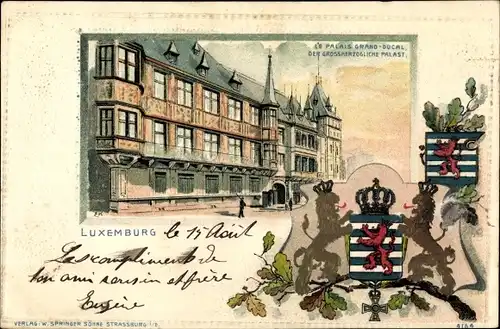 LE PALAIS GRAND-DUCAL
DER GROSSHERZOGLICHE PALAST.
LUXEMBURG
le 15 Août
Les compliments de
ton ami et frère
Eugène
VERLAG: W. SPRINGER SÖHNE STRASSBURG i/E.